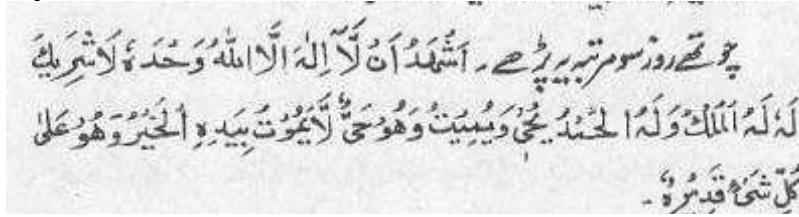 چوتھے روز سو مرتبہ یہ پڑھے۔ اَشْهَدُ اَنْ لَّآ اِلٰهَ اِلَّا اللهُ وَحْدَهٗ لَا شَرِيْكَ
لَهٗ لَهُ الْمُلْكُ وَلَهُ الْحَمْدُ يُحْيٖ وَيُمِيْتُ وَهُوَ حَيٌّ لَّا يَمُوْتُ بِيَدِهِ الْخَيْرُ وَهُوَ عَلٰى
كُلِّ شَىْءٍ قَدِيْرٌ۔